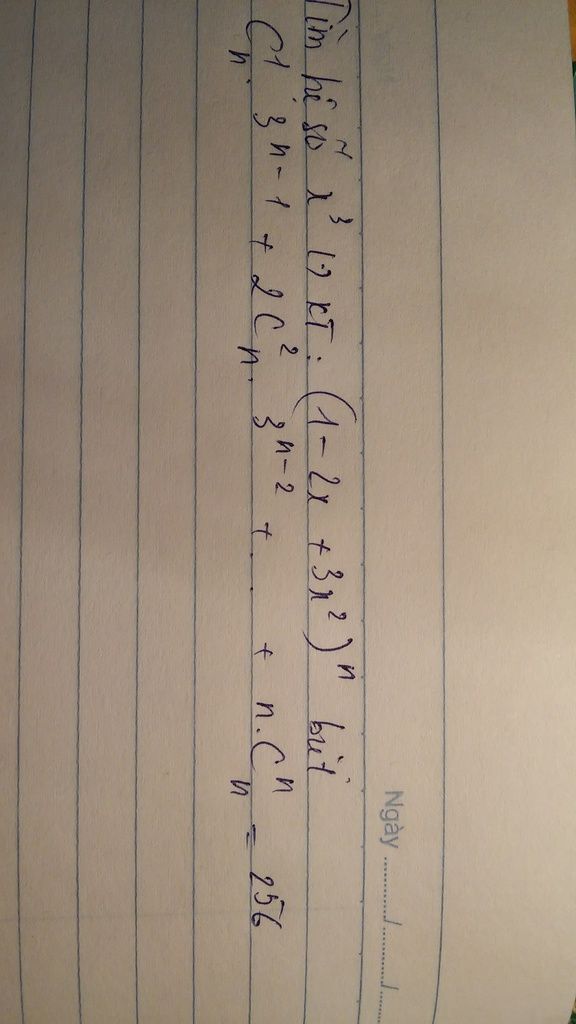 Ngày ....../....../......
Tìm hệ số x³ (?) KT: (1 - 2x + 3x²)ⁿ biết
C¹ₙ. 3ⁿ⁻¹ + 2C²ₙ. 3ⁿ⁻² + . + n.Cⁿₙ = 256